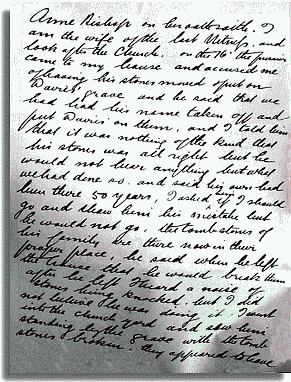 Anne Bishop on her oath saith. I
am the wife of the last Witness, and
look after the Church. on the 16th the prisoner
came to my house and accused me
of having his stones moved & put on
Davis' grave and he said that we
had had his name taken off and
put Davis' on them, and I told him
that it was nothing of the kind that
his stones was all right but he
would not hear anything but what
we had done so. and said his own had
been there 50 years, I asked if I should
go and show him his mistake but
he would not go, the tomb stones of
his family are there now in their
proper place, he said when he left
the house that he would break them
after he left I heard a noise of
stones being knocked, but I did
not believe he was doing it. I went
into the church yard and saw him
standing by the grave with the tomb
stones broken. they appeared to have